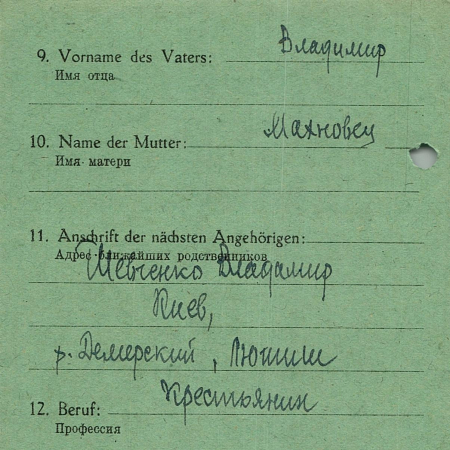 9. Vorname des Vaters: Владимир
Имя отца
10. Name der Mutter: Махновец
Имя матери
11. Anschrift der nächsten Angehörigen:
Адрес ближайших родственников
Шевченко Владимир
Киев,
р. Демерский, Лютиш
Крестьянин
12. Beruf:
Профессия